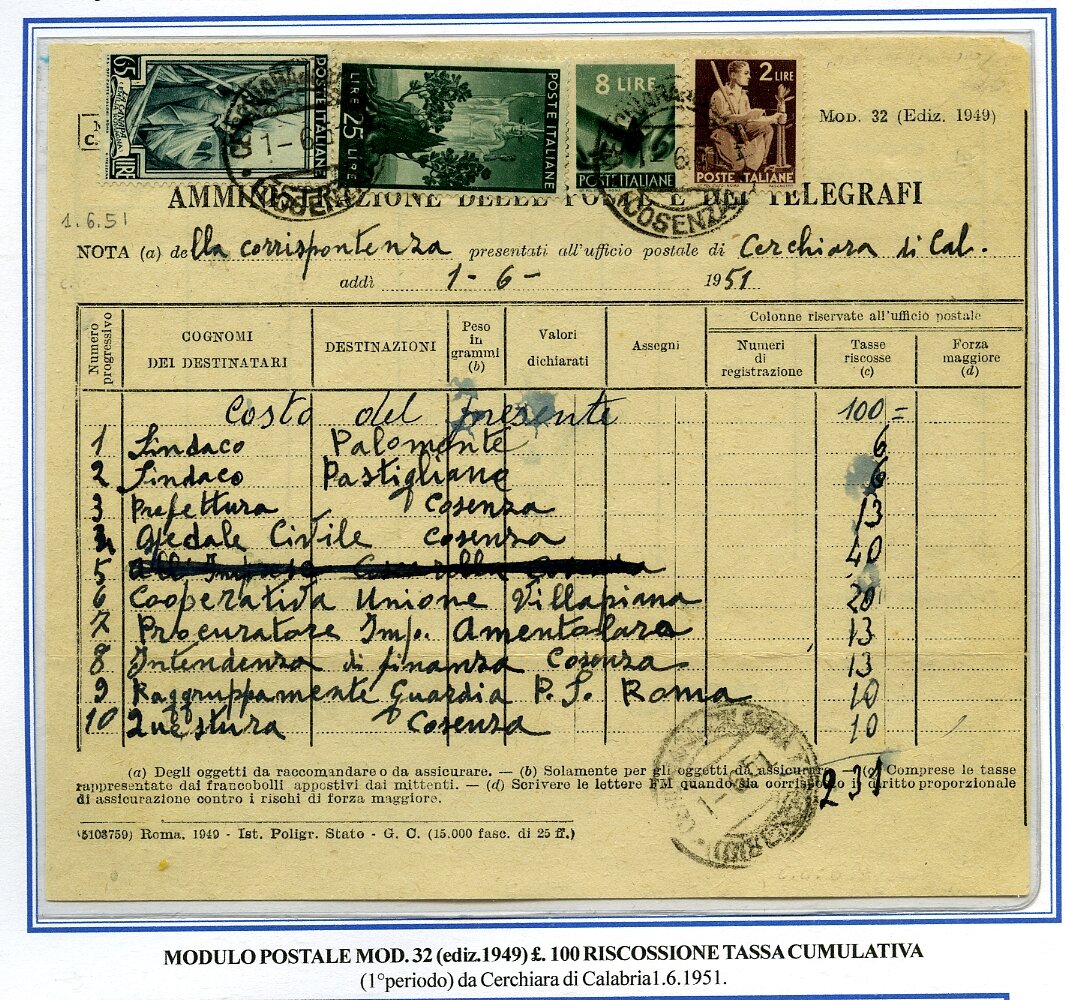 65 LIRE POSTE ITALIANE
LIRE 25 LIRE POSTE ITALIANE
8 LIRE POSTE ITALIANE
2 LIRE POSTE ITALIANE
COSENZA
COSENZA
MOD. 32 (Ediz. 1949)
AMMINISTRAZIONE DELLE POSTE E DEI TELEGRAFI
1.6.51
NOTA (a) della corrispontenza presentati all'ufficio postale di Cerchiara di Cal.
addì 1-6- 1951
Colonne riservate all'ufficio postale
Numero progressivo COGNOMI DEI DESTINATARI DESTINAZIONI Peso in grammi (b) Valori dichiarati Assegni Numeri di registrazione Tasse riscosse (c) Forza maggiore (d)
Costo del presente 100=
1 Sindaco Palomonte 6
2 Sindaco Pastigliano 6
3 Prefettura Cosenza 13
Ospedale Civile Cosenza 40
5
6 Cooperativa Unione Villapiana 20
7 Procuratore Imp. Amentolara 13
8 Intendenza di finanza Cosenza 13
9 Raggruppamente Guardia P.S. Roma 10
10 Questura Cosenza 10
231
(a) Degli oggetti da raccomandare o da assicurare. — (b) Solamente per gli oggetti da assicurare — (c) Comprese le tasse
rappresentate dai francobolli appostivi dai mittenti. — (d) Scrivere le lettere FM quando sia corrisposto il diritto proporzionale
di assicurazione contro i rischi di forza maggiore.
(5103759) Roma, 1949 - Ist. Poligr. Stato - G. C. (15.000 fasc. di 25 ff.)
MODULO POSTALE MOD. 32 (ediz.1949) £. 100 RISCOSSIONE TASSA CUMULATIVA
(1°periodo) da Cerchiara di Calabria1.6.1951.